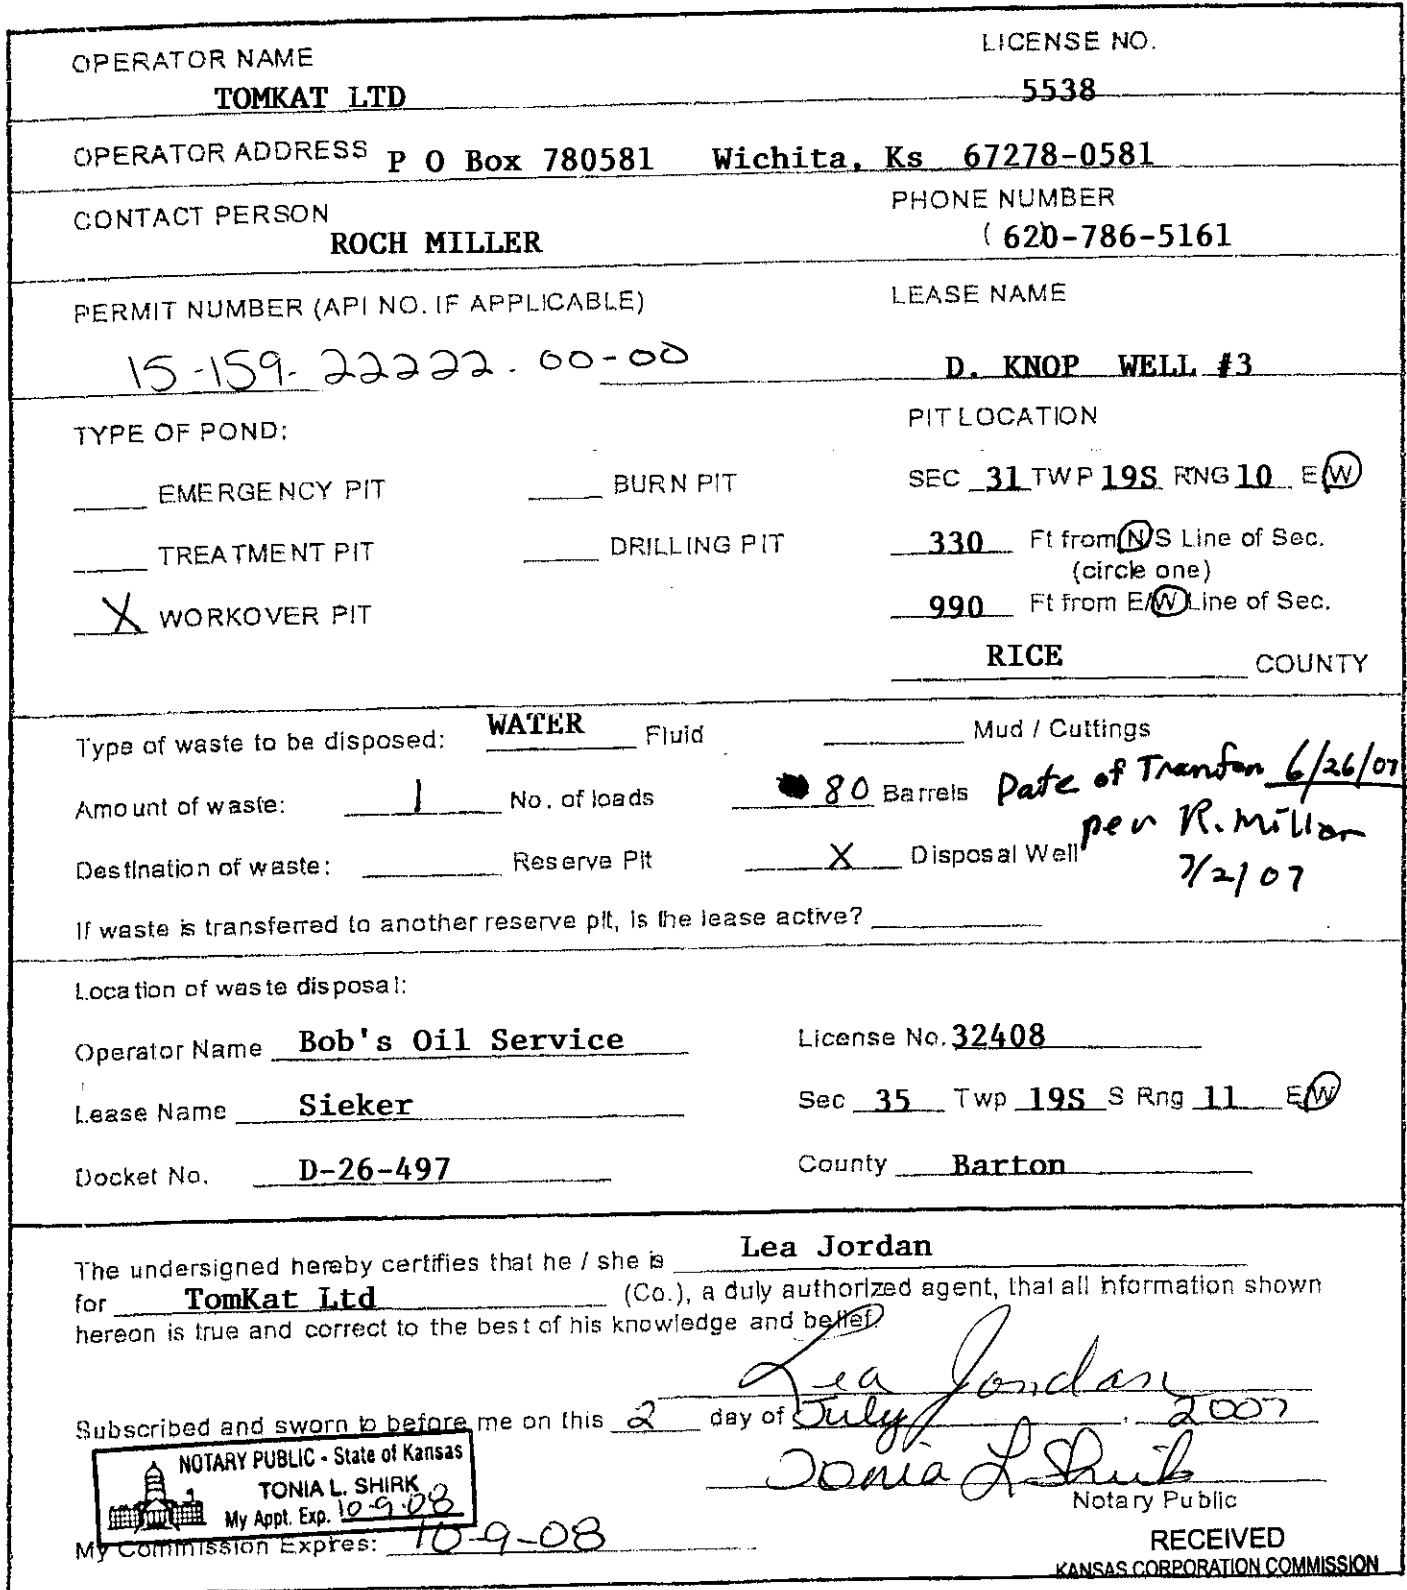 OPERATOR NAME LICENSE NO.
TOMKAT LTD 5538
OPERATOR ADDRESS P O Box 780581 Wichita, Ks 67278-0581
CONTACT PERSON PHONE NUMBER
ROCH MILLER (620-786-5161
PERMIT NUMBER (API NO. IF APPLICABLE) LEASE NAME
15-159-22222.00-00 D. KNOP WELL #3
TYPE OF POND: PIT LOCATION
EMERGENCY PIT BURN PIT SEC 31 TWP 19S RNG 10 E/W
TREATMENT PIT DRILLING PIT 330 Ft from N/S Line of Sec.
(circle one)
X WORKOVER PIT 990 Ft from E/W Line of Sec.
RICE COUNTY
Type of waste to be disposed: WATER Fluid Mud / Cuttings
Amount of waste: 1 No. of loads 80 Barrels Date of 6/26/07
per R. Miller
Destination of waste: Reserve Pit X Disposal Well
7/2/07
If waste is transferred to another reserve pit, is the lease active?
Location of waste disposal:
Operator Name Bob's Oil Service License No. 32408
Lease Name Sieker Sec 35 Twp 19S S Rng 11 E/W
Docket No. D-26-497 County Barton
The undersigned hereby certifies that he / she is Lea Jordan
for TomKat Ltd (Co.), a duly authorized agent, that all information shown
hereon is true and correct to the best of his knowledge and belief.
Lea Jordan
Subscribed and sworn to before me on this 2 day of July, 2007
NOTARY PUBLIC - State of Kansas
TONIA L. SHIRK
My Appt. Exp. 10-9-08
Tonia L. Shirk
Notary Public
My Commission Expires: 10-9-08
RECEIVED
KANSAS CORPORATION COMMISSION